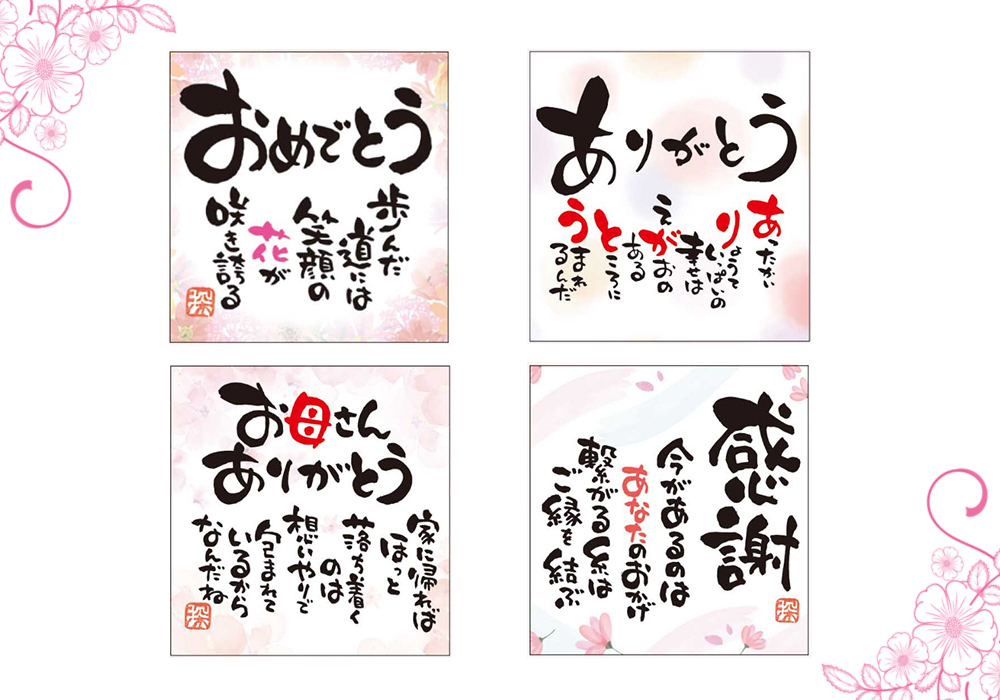 おめでとう
歩んだ
道には
笑顔の
花が
咲き誇る
ありがとう
あったかい
りょうて
いっぱいの
幸せは
えがおの
ある
ところに
うまれ
るんだ
お母さん
ありがとう
家に帰れば
ほっと
落ち着く
のは
想いやりで
包まれて
いるから
なんだね
感謝
今があるのは
あなたのおかげ
繋がる糸は
ご縁を結ぶ